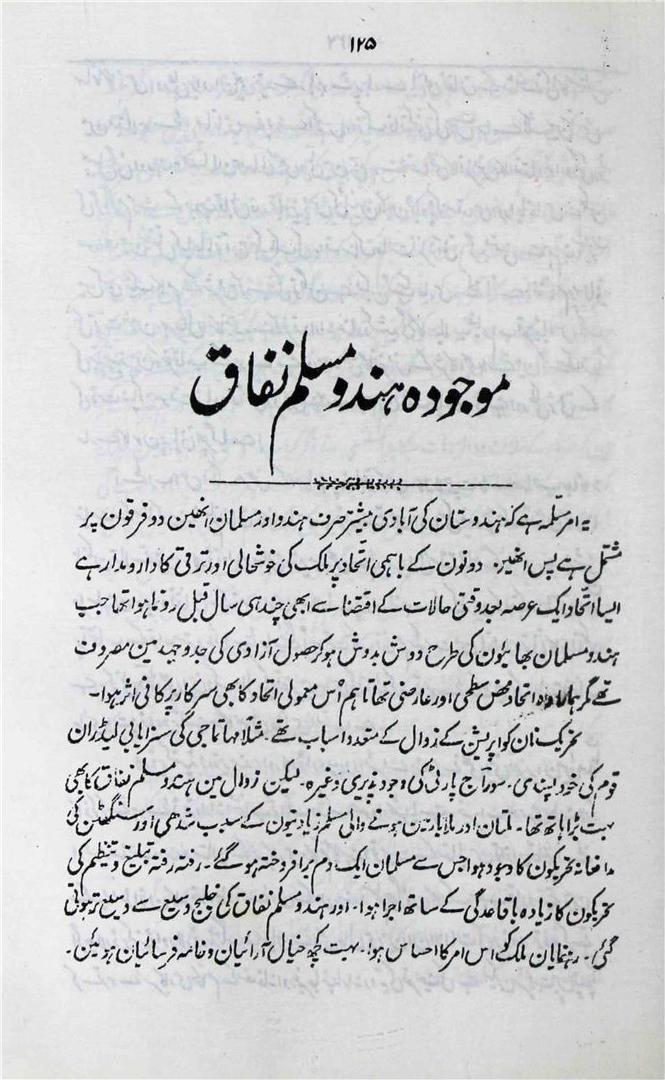 ۱۲۵
موجودہ ہندو مسلم نفاق
یہ امر مسلّمہ ہے کہ ہندوستان کی آبادی بیشتر صرف ہندو اور مسلمان انھین دو فرقون پر
مشتمل ہے پس انھیں دونون کے باہمی اتحاد پر ملک کی خوشحالی اور ترقی کا دار و مدار ہے
ایسا اتحاد ایک عرصہ بعد وقتی حالات کے اقتضا سے ابھی چند ہی سال قبل رونما ہوا تھا جب
ہندو مسلمان بھائیون کی طرح دوش بدوش ہو کر حصول آزادی کی جدوجہد مین مصروف
تھے گر ہمارا وہ اتحاد محض سطحی اور عارضی تھا تاہم اُس معمولی اتحاد کا بھی سرکار پر کافی اثر ہوا۔
تحریک نان کواپریشن کے زوال کے متعدد اسباب تھے۔ مثلاً مہاتما جی کی سزایابی لیڈران
قوم کی خود پسندی۔ سوراج پارٹی کی وجود پذیری وغیرہ۔ لیکن زوال مین ہندو مسلم نفاق کا بھی
بہت بڑا ہاتھ تھا۔ ملتان اور مالابار مین ہونے والی مسلم زیادتیون کے سبب شدھی اور سنگھٹن کی
مدافعانہ تحریکون کا وجود ہوا جس سے مسلمان ایک دم برافروختہ ہو گئے۔ رفتہ رفتہ تبلیغ و تنظیم کی
تحریکون کا زیادہ باقاعدگی کے ساتھ اجرا ہوا۔ اور ہندو مسلم نفاق کی خلیج وسیع سے وسیع تر ہوتی
گئی۔ رہنمایان ملک کو اس امر کا احساس ہوا۔ بہت کچھ خیال آرائیان و خامہ فرسائیان ہوئین۔